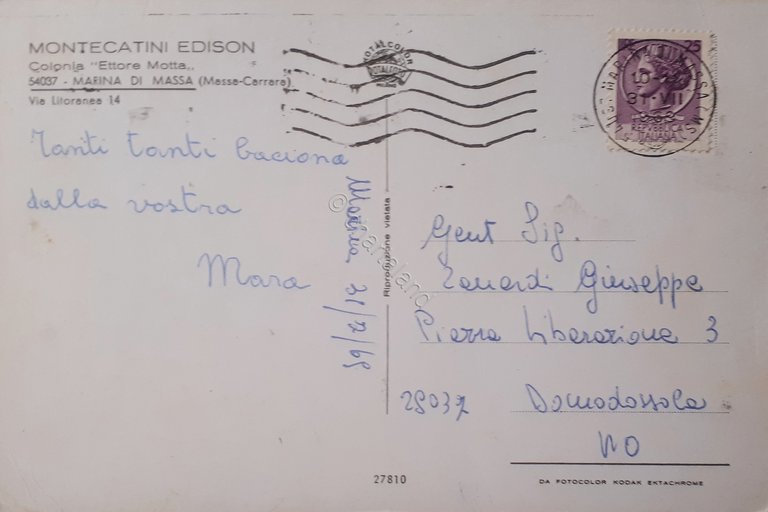 MONTECATINI EDISON
Colonia "Ettore Motta„
54037 - MARINA DI MASSA (Massa-Carrara)
Via Litoranea 14
Tanti tanti baciona
dalla vostra
Mara
31/7/68
Riproduzione vietata
TOTALCOLOR
TOTALCOLOR
MILANO
25
REPVBBLICA
ITALIANA
Gent Sig.
Giuseppe
Piazza Liberazione 3
28037 Domodossola
NO
27810
DA FOTOCOLOR KODAK EKTACHROME